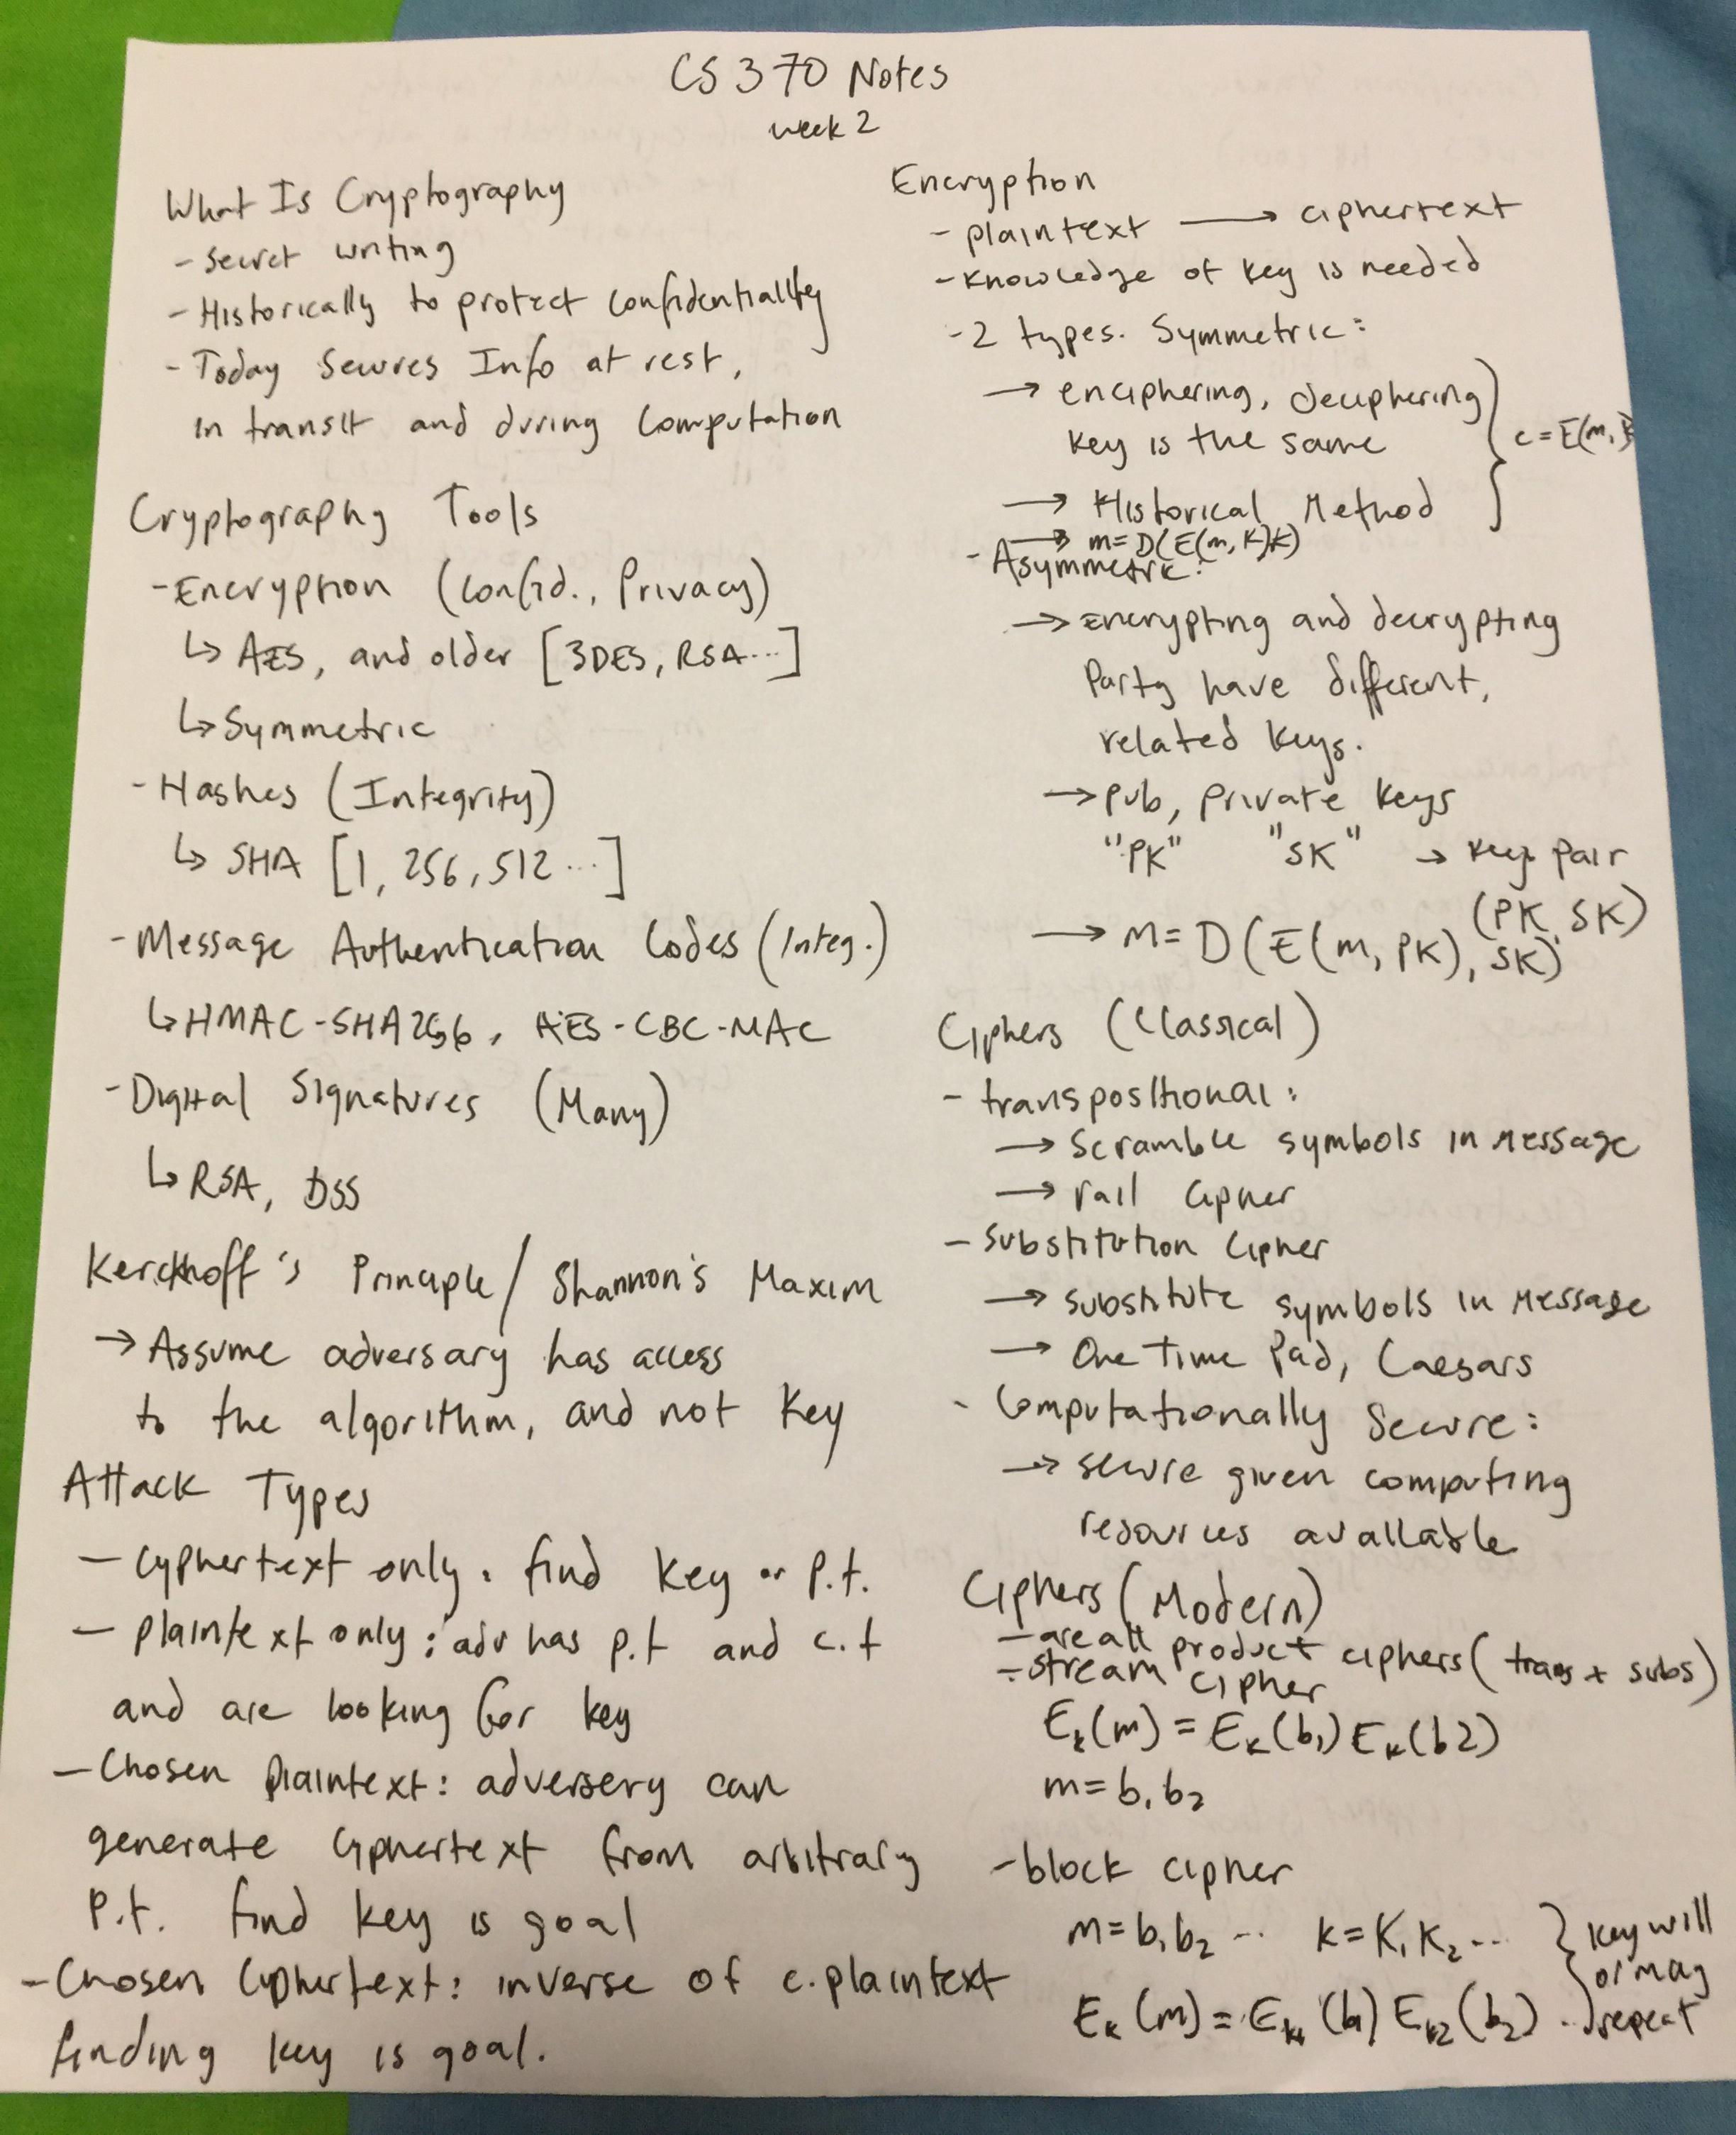 CS 370 Notes
week 2
What Is Cryptography
- Secret writing
- Historically to protect confidentiality
- Today Secures Info at rest,
in transit and during computation
Cryptography Tools
- Encryption (Confid., Privacy)
↳ AES, and older [3DES, RSA...]
↳ Symmetric
- Hashes (Integrity)
↳ SHA [1, 256, 512...]
- Message Authentication Codes (Integ.)
↳ HMAC-SHA256, AES-CBC-MAC
- Digital Signatures (Many)
↳ RSA, DSS
Kerckhoff's Principle / Shannon's Maxim
→ Assume adversary has access
to the algorithm, and not key
Attack Types
- Cyphertext only: find key or p.t.
- Plaintext only: adv has p.t and c.t
and are looking for key
- Chosen Plaintext: adversery can
generate ciphertext from arbitrary
P.t. find key is goal
- Chosen Cyphertext: inverse of c.plaintext
finding key is goal.
Encryption
- plaintext → ciphertext
- Knowledge of key is needed
- 2 types. Symmetric:
→ enciphering, deciphering
key is the same
c = E(m,
→ Historical Method
→ m = D(E(m, K)K)
- Asymmetric:
→ encrypting and decrypting
Party have different,
related keys.
→ pub, private keys
"PK" "SK" → key pair
(PK, SK)
→ m = D(E(m, PK), SK)
Ciphers (Classical)
- transpositional:
→ Scramble symbols in message
→ rail cipher
- Substitution Cipher
→ substitute symbols in message
→ One Time Pad, Caesars
- Computationally Secure:
→ secure given computing
resources available
Ciphers (Modern)
- are all product ciphers (trans + subs)
- stream cipher
Eₖ(m) = Eₖ(b₁) Eₖ(b2)
m = b₁ b₂
- block cipher
m = b₁ b₂ ... k = K₁ K₂ ...
Eₖ(m) = Eₖ₁(b₁) Eₖ₂(b₂) ...
key will
or may
repeat